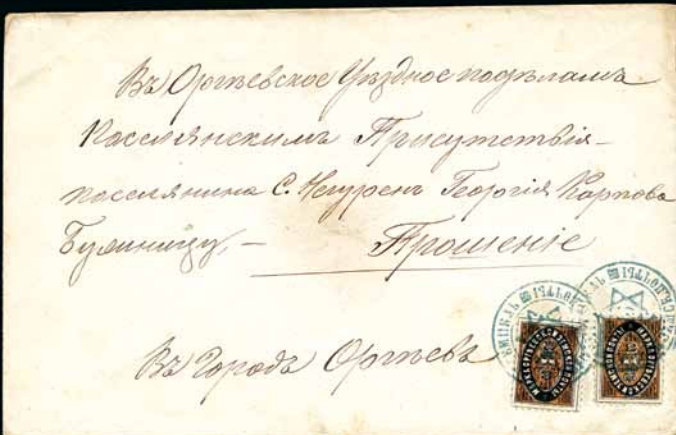 Въ Оргѣевское Уѣздное по дѣламъ
Поселянскимъ Присутствія -
поселянина С. Негуренъ Георгія Карпова
Прошеніе
Въ Городъ Оргѣевъ